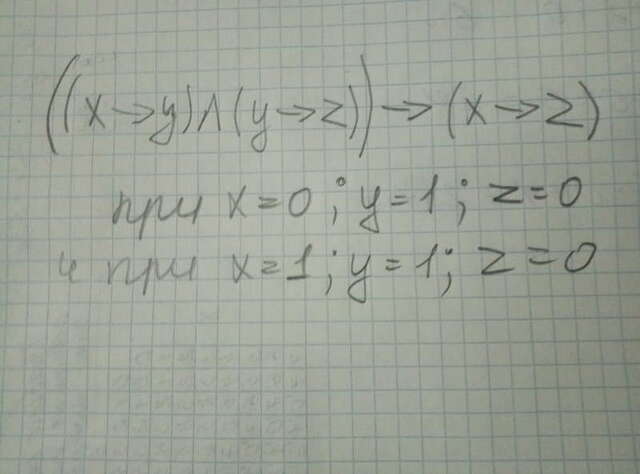 ((x→y)∧(y→z))→(x→z)
при x=0; y=1; z=0
и при x=1; y=1; z=0